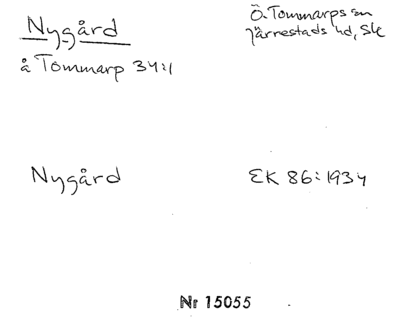 Nygård
Ö. Tommarps sn
Järrestads hd, Sk
å Tommarp 34:1
Nygård
EK 86:1934
Nr 15055